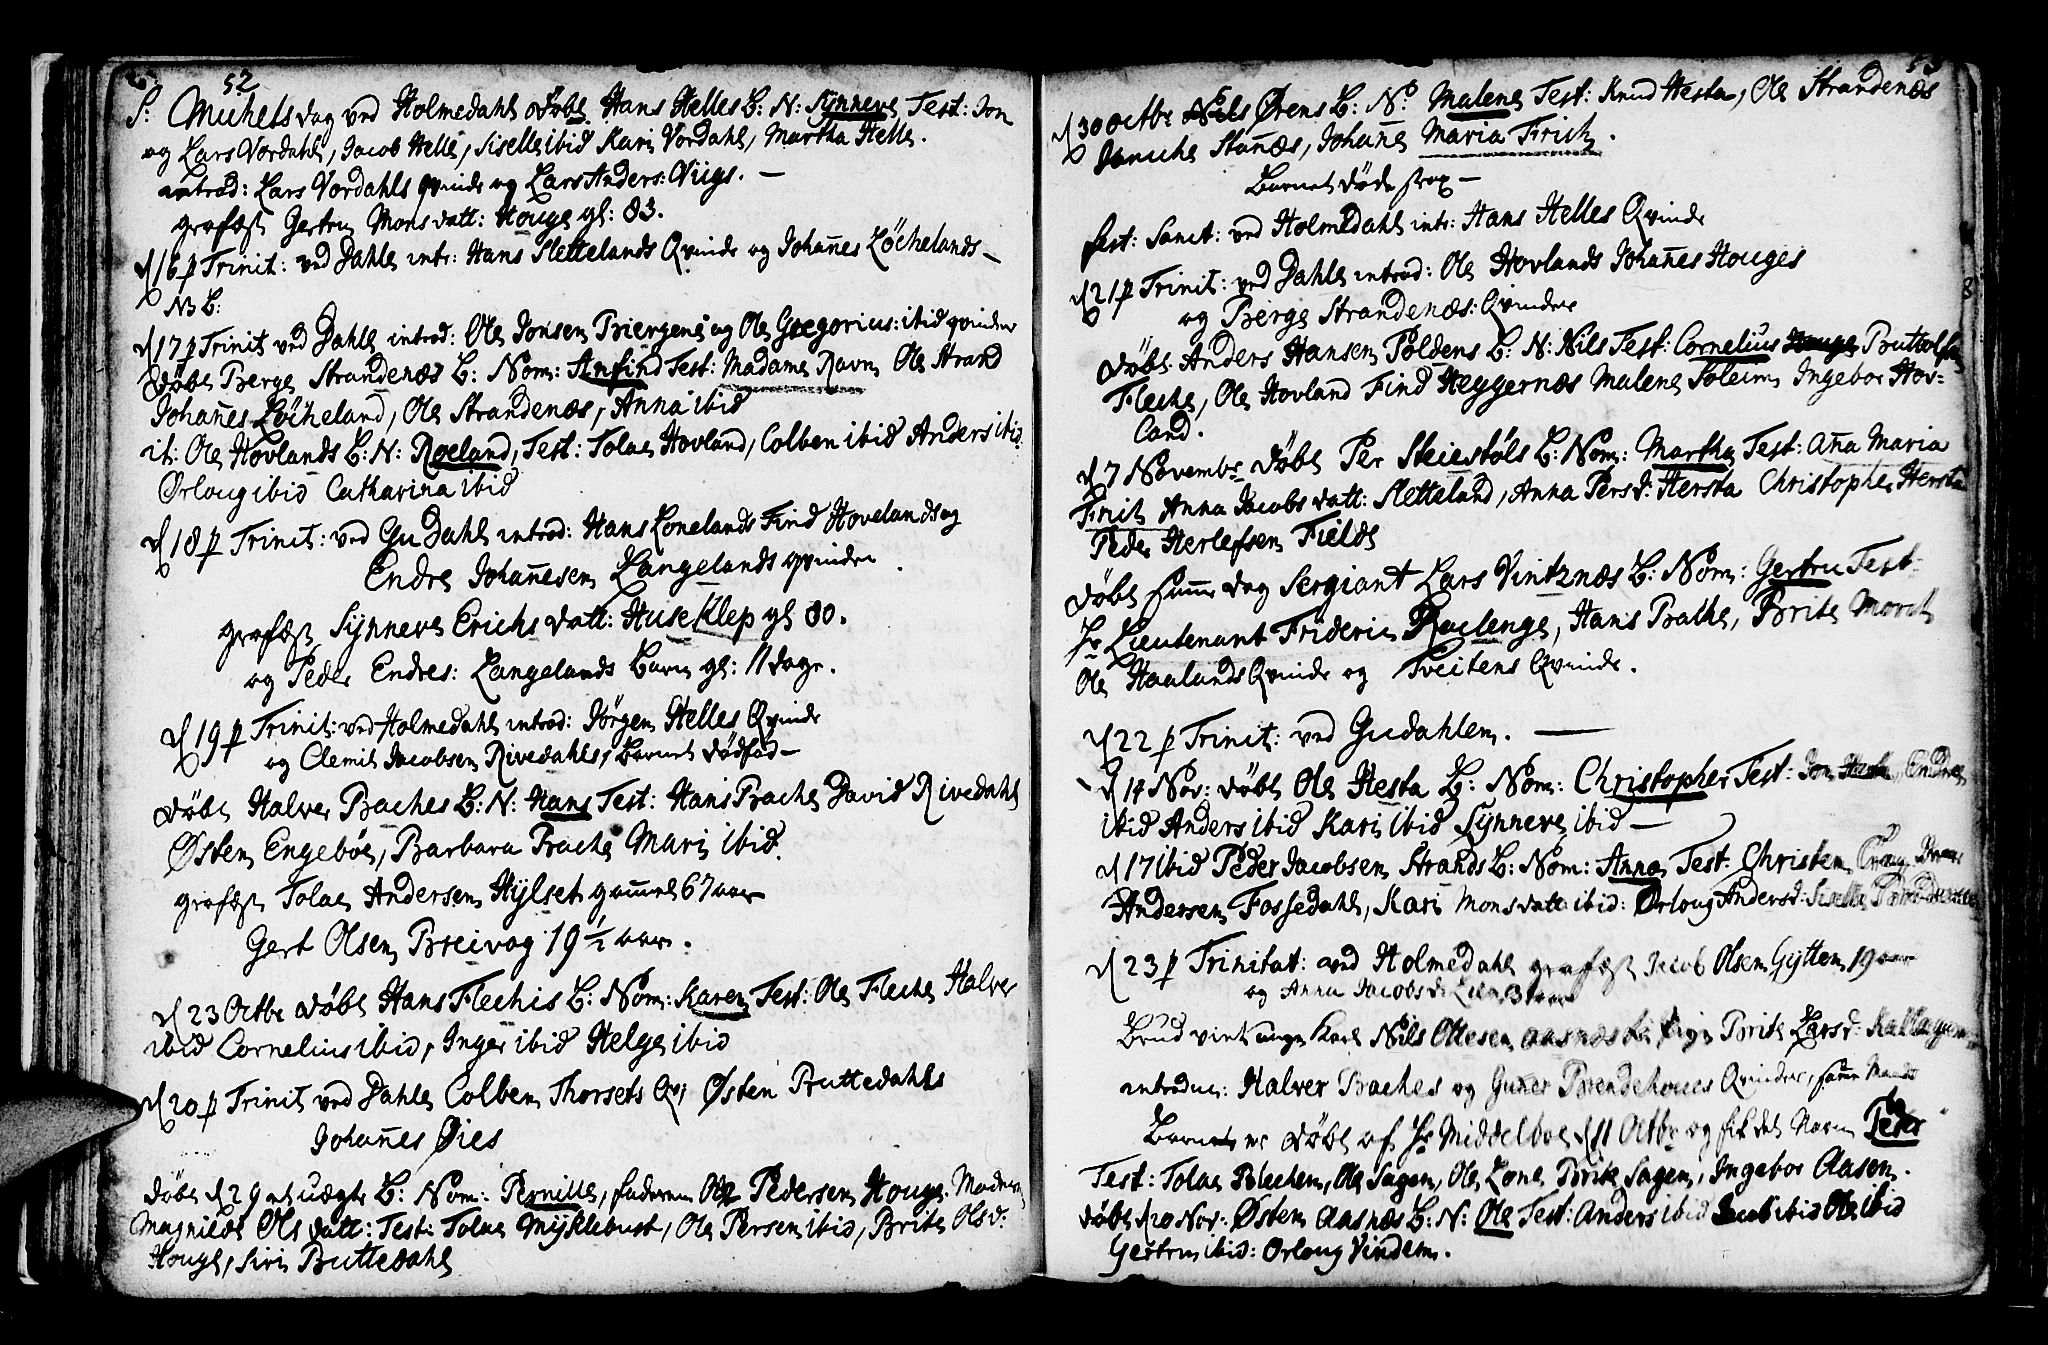 52
S: Michels dag ved Holmedahl døbt Hans Helles B: N: Synneve Test: Jon
og Lars Vordahl, Jacob Helle, Siselle ibid Kari Vordahl, Martha Helle.
introd: Lars Vordahls qvinde og Lars Anders: Viigs. —
grafæst Gertru Monsdatt: Houge gl: 83.
d 16 p Trinit: ved Dahle intr: Hans Slettelands Qvinde og Johañes Löchelands —
NB B:
d 17 p Trinit ved Dahle introd: Ole Jonsen Biergene og Ole Gregorius: ibid qvinder
døbt Berge Strandenæs B: Nom: Anfind Test: Madame Ravn Ole Strand
Johañes Löcheland, Ole Strandenæs, Anna ibid
it: Ole Hovlands B: N: Roeland, Test: Tolae Hovland, Colben ibid Anders ibid
Ørloug ibid Catharina ibid
d 18 p Trinit: ved Gudahl introd: Hans Lonelands Find Hovelands og
Endre Johañesen Langelands qvinder.
grafæst Synneve Erichs datt: Huse Klep gl 80.
og Peder Endres: Langelands Barn gl: 11 dage.
d 19 p Trinit: ved Holmedahl introd: Jörgen Helles Qvinde
og Clemit Jacobsen Rivedahls, Barnet dødfød —
døbt Halver Baches B: N: Hans Test: Hans Bache David Rivedahl
Østen Engeböe, Barbara Bache Mari ibid.
grafæst Tolae Andersen Hylset gammel 67 aar
Gert Olsen Breivog 19 1/2 aar.
d 23 Octbr døbt Hans Flechis B: Nom: Karen Test: Ole Fleche Halver
ibid Cornelius ibid, Inger ibid Helge ibid
d 20 p Trinit ved Dahle Colben Thorsets Qv: Østen Buttedahls
Johañes Øies
døbt d 29 et uægte B: Nom: Pernille, faderen Ole Pedersen Houge. Moderen
Magnilde Ols datt: Test: Tolae Myklebust, Ole Persen ibid, Brite Olsd:
Houge, Siri Buttedahl
53
d 30 Octbr Nils Ørens B: N: Malene Test: Knud Hesta, Ole Strandenæs
Stañæs, Johañe Maria Frich.
Barnet døde strax —
fest: Sanct: ved Holmedahl intr: Hans Helles Qvinde
d 21 p Trinit: ved Dahle introd: Ole Hovlands Johañes Houges
og Berge Strandenæs: Qvinder
døbt Anders Hansen Poldens B: N: Nils Test: Cornelius Buttolfsen
Fleche, Ole Hovland Find Heggernæs Malene Soleim Ingebor Hov-
land.
d 7 Novembr døbt Per Skiestöls B: Nom: Martha Test: Aña Maria
Frich Anna Jacobs datt: Sletteland, Anna Pers d: Hersta Christopher Hersta
Peder Herlefsen Fielde
døbt samme dag Sergiant Lars Vintznæs B: Nom: Gertru Test:
Hr Lieutenant Frideric Raelenge, Hans Bakke, Brite
Ole Haalands Qvinde og Tveitens Qvinde.
d 22 p Trinit: ved Gudahlen. —
d 14 Nov: døbt Ole Hesta B: Nom: Christopher Test: Jon Hesta, Endre
ibid Anders ibid Kari ibid Synneve ibid —
d 17 ibid Peder Jacobsen Strands B: Nom: Anna Test: Christen
Andersen Fossedahl, Kari Mons datt ibid: Ørloug Andersd: Siselle
d 23 p Trinitat: ved Holmedahl grafæst Jacob Olsen Gytten 19 aar
og Anna Jacobs d:
Brudviet unge Karl Nils Ottesen Aasnæs og Pige Brite Larsd:
introduc: Halver Baches og Guñer Brendehoues Qvinder, samme Mands
Barnet er døbt af Hr Middelboe d 11 Octbr og fik det Navn Peder
Test: Tolae Blechen, Ole Sagen, Ole Lone Brite Sagen, Ingebor Aasen.
døbt d 20 Nov: Østen Aasnæs B: N: Ole Test: Anders ibid Jacob ibid Ole ibid
Gertru ibid: Ørloug Vindem.